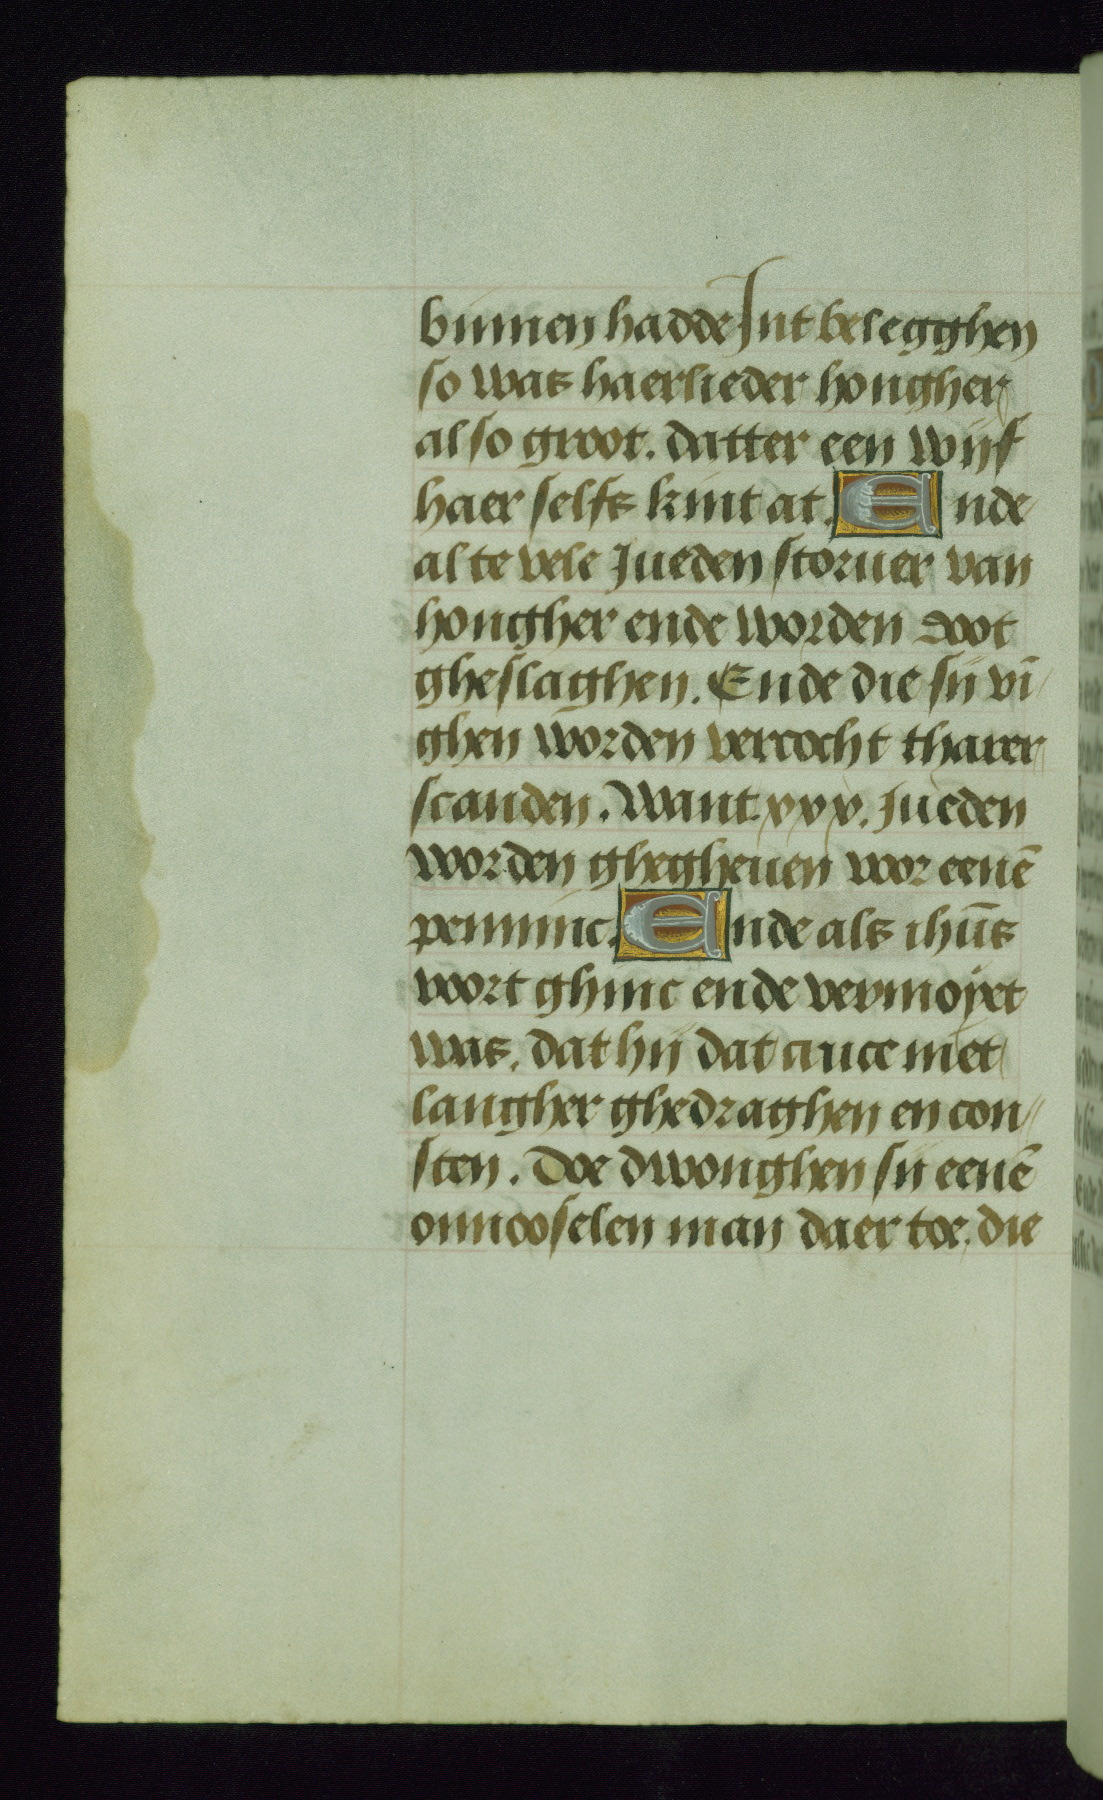 binnen hadde Int belegghen
so was haerlieder hongher
also groot. datter een wijf
haer selfs kint at. Ende
al te vele Jueden storuer van
hongher ende worden doot
gheslaghen. Ende die sij vi
ghen worden vercocht tharer
scanden. Want .xxx. Jueden
worden ghegheuen voor eenē
penninc. Ende als ihūs
voort ghinc ende vermoyet
was. dat hij dat cruce niet
langher ghedraghen en con
sten. Doe dwonghen sij eenē
onnooselen man daer toe. die